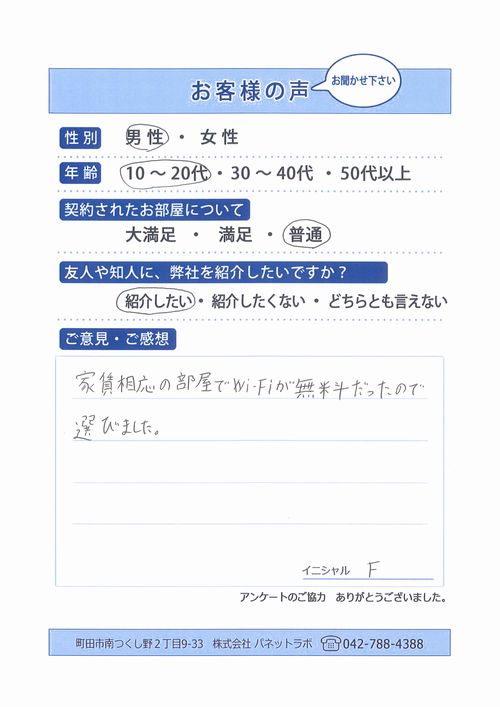 お聞かせ下さい
お客様の声
性別 男性 ・ 女性
年齢 10 ～ 20代 ・ 30 ～ 40代 ・ 50代以上
契約されたお部屋について
大満足 ・ 満足 ・ 普通
友人や知人に、弊社を紹介したいですか？
紹介したい ・ 紹介したくない ・ どちらとも言えない
ご意見・ご感想
家賃相応の部屋でWi-Fiが無料だったので
選びました。
イニシャル F
アンケートのご協力 ありがとうございました。
町田市南つくし野２丁目9-33 株式会社 パネットラボ 042-788-4388